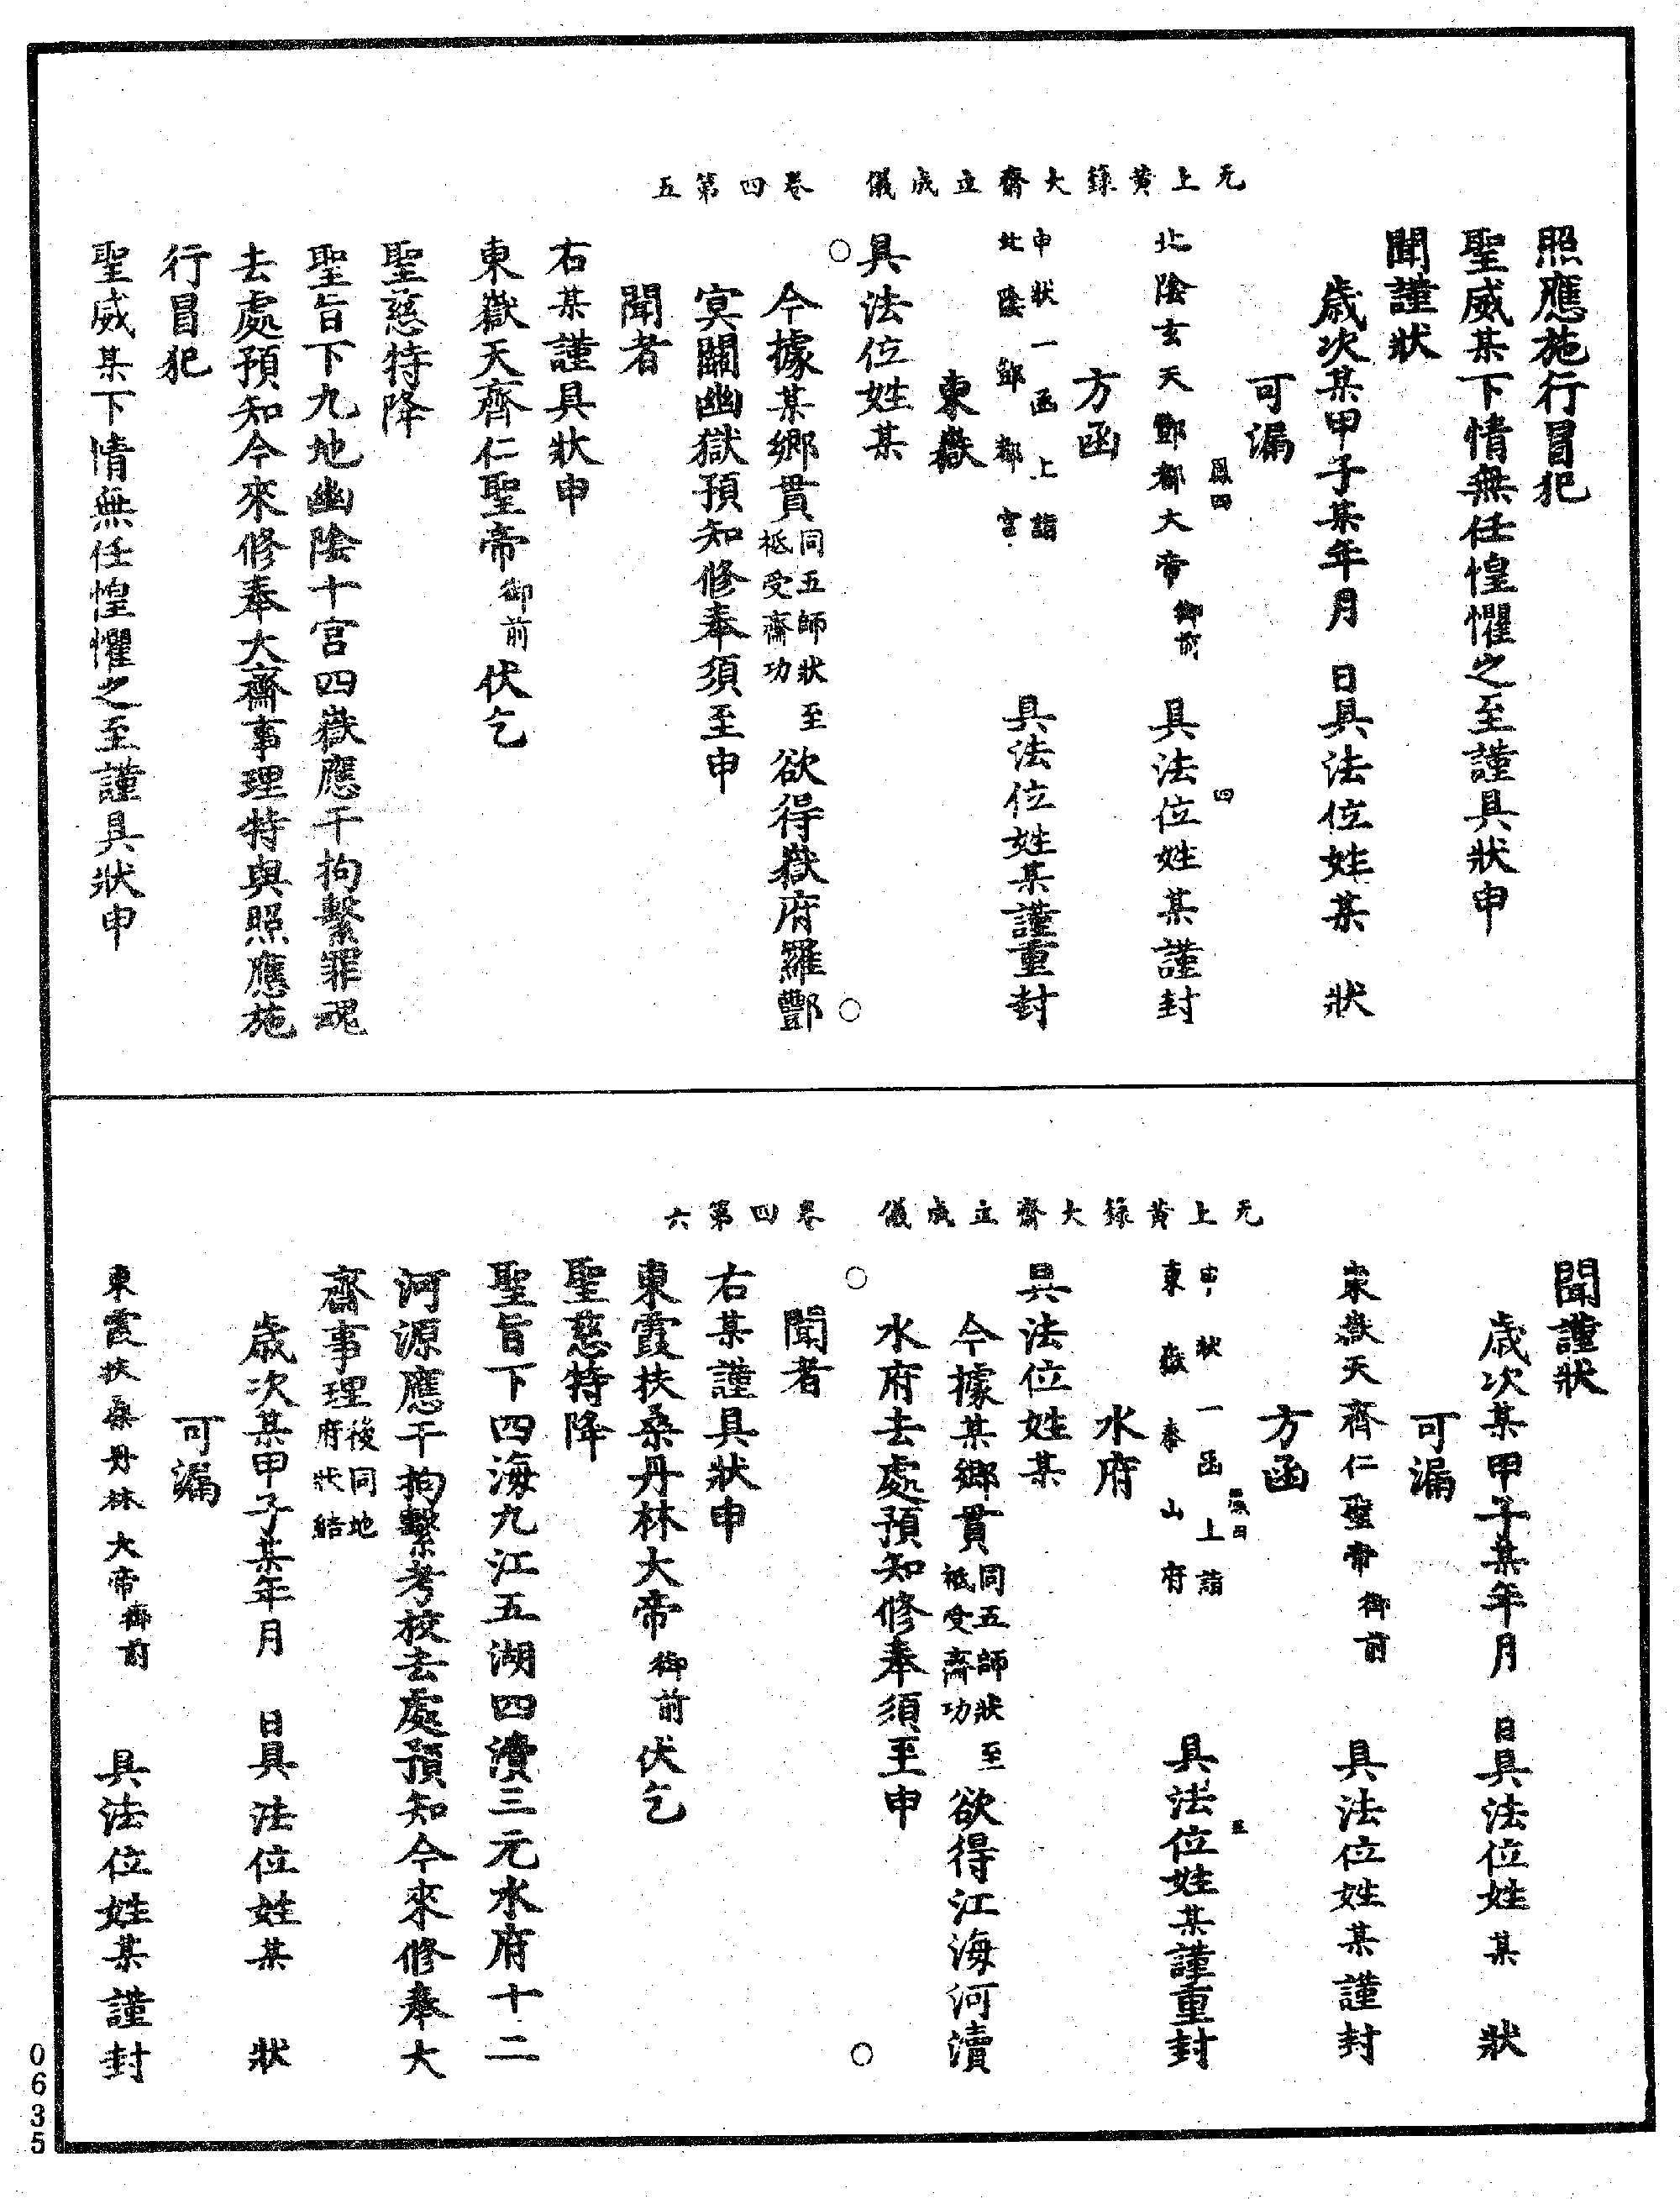 元上黃籙大齋立成儀　卷四第五
照應施行冒犯
聖威某下情無任惶懼之至謹具狀申
聞謹狀
歲次某甲子某年月　日具法位姓某　狀
可漏
鳳四　四
北陰玄天酆都大帝御前　具法位姓某謹封
方函
申狀一函上詣
北陰酆都宮　具法位姓某謹重封
東嶽
具法位姓某
今據某鄉貫同五師狀祗受齋功至欲得嶽府羅酆
冥關幽獄預知修奉須至申
聞者
右某謹具狀申
東嶽天齊仁聖帝御前伏乞
聖慈特降
聖旨下九地幽陰十宮四嶽應干拘繫罪魂
去處預知今來修奉大齋事理特與照應施
行冒犯
聖威某下情無任惶懼之至謹具狀申
元上黃籙大齋立成儀　卷四第六
聞謹狀
歲次某甲子某年月　日具法位姓某　狀
可漏
東嶽天齊仁聖帝御前　具法位姓某謹封
方函
申狀一函上詣
東嶽泰山府　具法位姓某謹重封
水府
具法位姓某
今據某鄉貫同五師狀祗受齋功至欲得江海河瀆
水府去處預知修奉須至申
聞者
右某謹具狀申
東霞扶桑丹林大帝御前伏乞
聖慈特降
聖旨下四海九江五湖四瀆三元水府十二
河源應干拘繫考校去處預知今來修奉大
齋事理後同地府狀結
歲次某甲子某年月　日具法位姓某　狀
可漏
東霞扶桑丹林大帝御前　具法位姓某謹封
0635